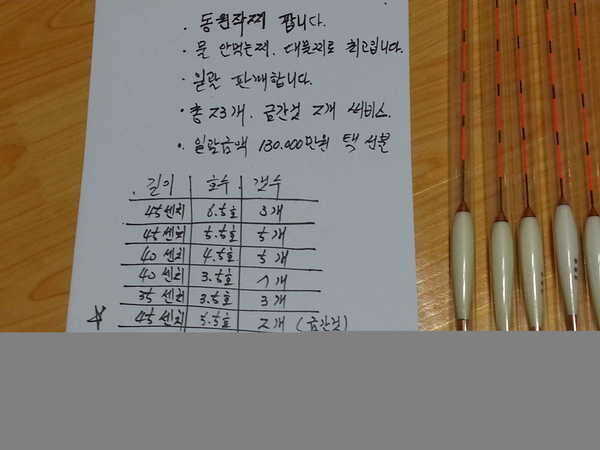 . 동원작찌 팝니다.
· 물 안먹는찌. 대물찌로 최고입니다.
· 일괄 판매합니다.
· 총 23개. 금간것 2개 서비스.
· 일괄금액 130.000만원 택 선불
. 길이 호수. 갯수
45센치 6.5호 3개
45센치 5.5호 5개
40센치 4.5호 5개
40센치 3.5호 1개
35센치 3.5호 3개
☆ 45센치 5.5호 2개 (금간것)